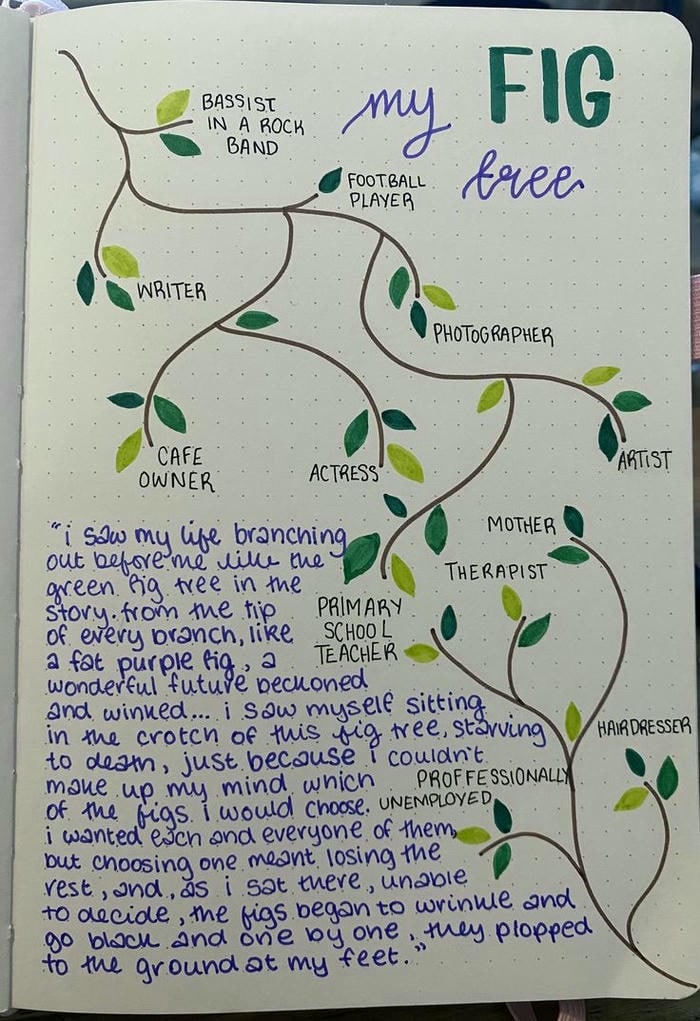 my FIG
tree
BASSIST
IN A ROCK
BAND
FOOTBALL
PLAYER
WRITER
PHOTOGRAPHER
CAFE
OWNER
ACTRESS
ARTIST
MOTHER
THERAPIST
PRIMARY
SCHOOL
TEACHER
HAIRDRESSER
PROFFESSIONALLY
UNEMPLOYED
"i saw my life branching
out before me like the
green fig tree in the
story. from the tip
of every branch, like
a fat purple fig, a
wonderful future beckoned
and winked... i saw myself sitting
in the crotch of this fig tree, starving
to death, just because i couldn't
make up my mind which
of the figs i would choose.
i wanted each and everyone of them,
but choosing one meant losing the
rest, and, as i sat there, unable
to decide, the figs began to wrinkle and
go black and one by one, they plopped
to the ground at my feet."